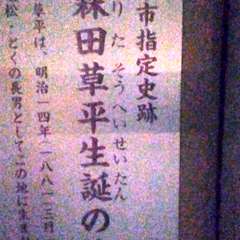 市指定史跡
りたそうへいせいたん
森田草平生誕の
草平は、明治一四年(一八八一)三月
松・とくの長男としてこの地に生ま